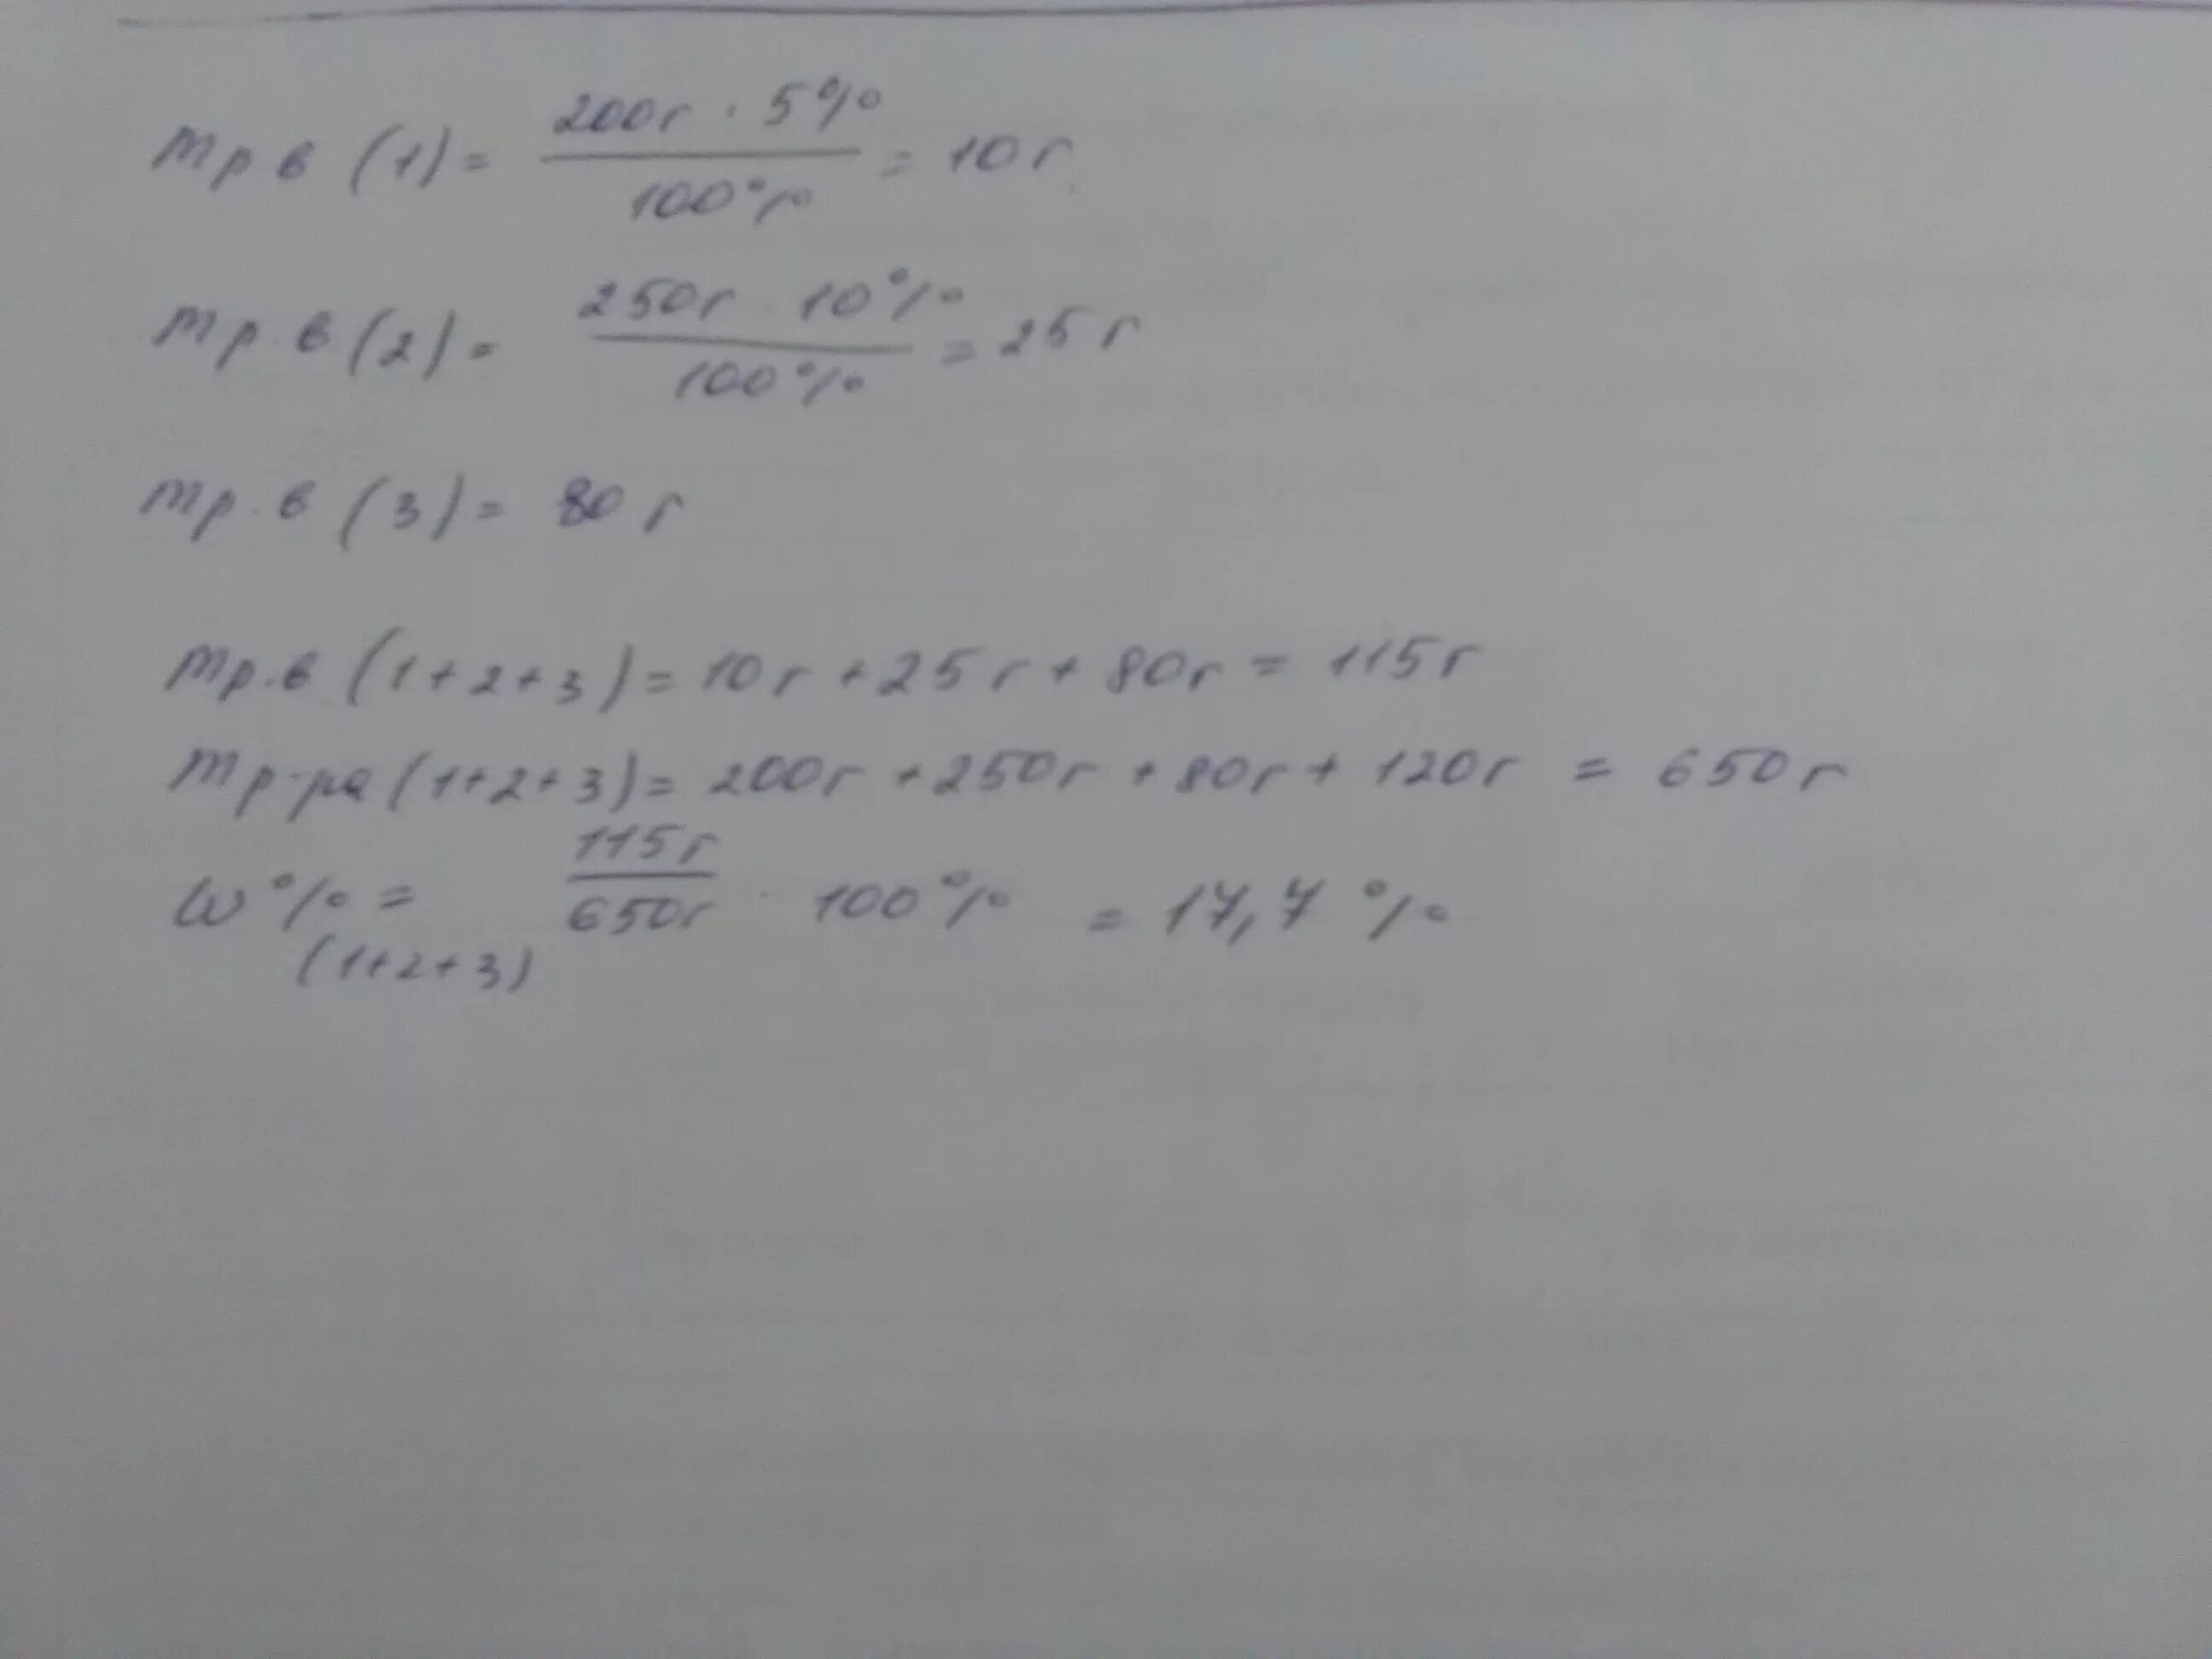 mр.в (1) = 200г · 5% / 100% = 10г.
mр.в (2) = 250г · 10% / 100% = 25г
mр.в (3) = 80г
mр.в (1+2+3) = 10г + 25г + 80г = 115г
mр-ра (1+2+3) = 200г + 250г + 80г + 120г = 650г
ω% (1+2+3) = 115г / 650г · 100% = 17,7%